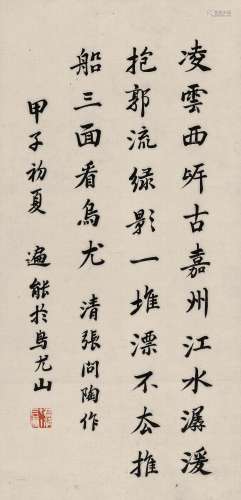 凌雲西岸古嘉州江水潺湲
抱郭流緑影一堆漂不厺推
船三面看烏尤 清張問陶作
甲子初夏 遍能於烏尤山